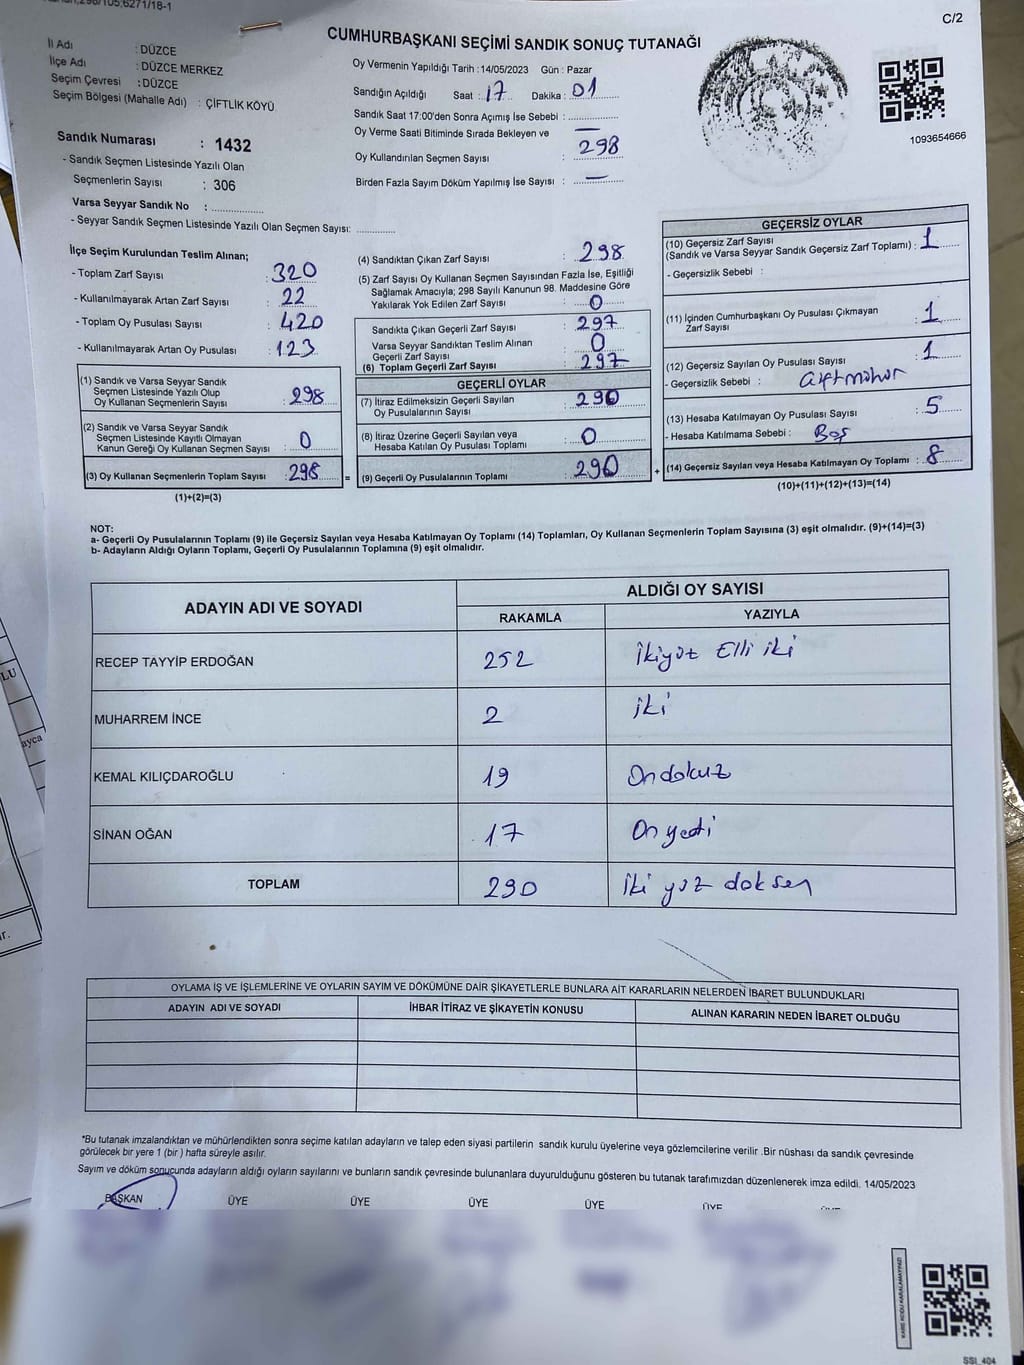 298/105;6271/18-1
C/2
CUMHURBAŞKANI SEÇİMİ SANDIK SONUÇ TUTANAĞI
İl Adı : DÜZCE
İlçe Adı : DÜZCE MERKEZ
Seçim Çevresi : DÜZCE
Seçim Bölgesi (Mahalle Adı) : ÇİFTLİK KÖYÜ
Sandık Numarası : 1432
- Sandık Seçmen Listesinde Yazılı Olan
Seçmenlerin Sayısı : 306
Varsa Seyyar Sandık No : ................
- Seyyar Sandık Seçmen Listesinde Yazılı Olan Seçmen Sayısı: ............
Oy Vermenin Yapıldığı Tarih : 14/05/2023 Gün : Pazar
Sandığın Açıldığı Saat : 17 Dakika : 01
Sandık Saat 17:00'den Sonra Açımış İse Sebebi : —
Oy Verme Saati Bitiminde Sırada Bekleyen ve
Oy Kullandırılan Seçmen Sayısı : 298
Birden Fazla Sayım Döküm Yapılmış İse Sayısı : —
1093654666
İlçe Seçim Kurulundan Teslim Alınan;
- Toplam Zarf Sayısı : 320
- Kullanılmayarak Artan Zarf Sayısı : 22
- Toplam Oy Pusulası Sayısı : 420
- Kullanılmayarak Artan Oy Pusulası : 123
(1) Sandık ve Varsa Seyyar Sandık
Seçmen Listesinde Yazılı Olup
Oy Kullanan Seçmenlerin Sayısı : 298
(2) Sandık ve Varsa Seyyar Sandık
Seçmen Listesinde Kayıtlı Olmayan
Kanun Gereği Oy Kullanan Seçmen Sayısı : 0
(3) Oy Kullanan Seçmenlerin Toplam Sayısı : 298 =
(1)+(2)=(3)
(4) Sandıktan Çıkan Zarf Sayısı : 298
(5) Zarf Sayısı Oy Kullanan Seçmen Sayısından Fazla İse, Eşitliği
Sağlamak Amacıyla; 298 Sayılı Kanunun 98. Maddesine Göre
Yakılarak Yok Edilen Zarf Sayısı : 0
Sandıkta Çıkan Geçerli Zarf Sayısı : 297
Varsa Seyyar Sandıktan Teslim Alınan
Geçerli Zarf Sayısı : 0
(6) Toplam Geçerli Zarf Sayısı : 297
GEÇERLİ OYLAR
(7) İtiraz Edilmeksizin Geçerli Sayılan
Oy Pusulalarının Sayısı : 290
(8) İtiraz Üzerine Geçerli Sayılan veya
Hesaba Katılan Oy Pusulası Toplamı : 0
(9) Geçerli Oy Pusulalarının Toplamı : 290 +
GEÇERSİZ OYLAR
(10) Geçersiz Zarf Sayısı
(Sandık ve Varsa Seyyar Sandık Geçersiz Zarf Toplamı) : 1
- Geçersizlik Sebebi :
(11) İçinden Cumhurbaşkanı Oy Pusulası Çıkmayan
Zarf Sayısı : 1
(12) Geçersiz Sayılan Oy Pusulası Sayısı : 1
- Geçersizlik Sebebi : Çift mühür
(13) Hesaba Katılmayan Oy Pusulası Sayısı : 5
- Hesaba Katılmama Sebebi : Boş
(14) Geçersiz Sayılan veya Hesaba Katılmayan Oy Toplamı : 8
(10)+(11)+(12)+(13)=(14)
NOT:
a- Geçerli Oy Pusulalarının Toplamı (9) ile Geçersiz Sayılan veya Hesaba Katılmayan Oy Toplamı (14) Toplamları, Oy Kullanan Seçmenlerin Toplam Sayısına (3) eşit olmalıdır. (9)+(14)=(3)
b- Adayların Aldığı Oyların Toplamı, Geçerli Oy Pusulalarının Toplamına (9) eşit olmalıdır.
ADAYIN ADI VE SOYADI ALDIĞI OY SAYISI
RAKAMLA YAZIYLA
RECEP TAYYİP ERDOĞAN 252 İkiyüz Elli iki
MUHARREM İNCE 2 iki
KEMAL KILIÇDAROĞLU 19 Ondokuz
SİNAN OĞAN 17 On yedi
TOPLAM 290 İki yüz doksen
OYLAMA İŞ VE İŞLEMLERİNE VE OYLARIN SAYIM VE DÖKÜMÜNE DAİR ŞİKAYETLERLE BUNLARA AİT KARARLARIN NELERDEN İBARET BULUNDUKLARI
ADAYIN ADI VE SOYADI İHBAR İTİRAZ VE ŞİKAYETİN KONUSU ALINAN KARARIN NEDEN İBARET OLDUĞU
*Bu tutanak imzalandıktan ve mühürlendikten sonra seçime katılan adayların ve talep eden siyasi partilerin sandık kurulu üyelerine veya gözlemcilerine verilir .Bir nüshası da sandık çevresinde
görülecek bir yere 1 (bir ) hafta süreyle asılır.
Sayım ve döküm sonucunda adayların aldığı oyların sayılarını ve bunların sandık çevresinde bulunanlara duyurulduğunu gösteren bu tutanak tarafımızdan düzenlenerek imza edildi. 14/05/2023
BAŞKAN ÜYE ÜYE ÜYE ÜYE ÜYE
KARE KODU KARALAMAYINIZ!
SSI_404
LU
ayca